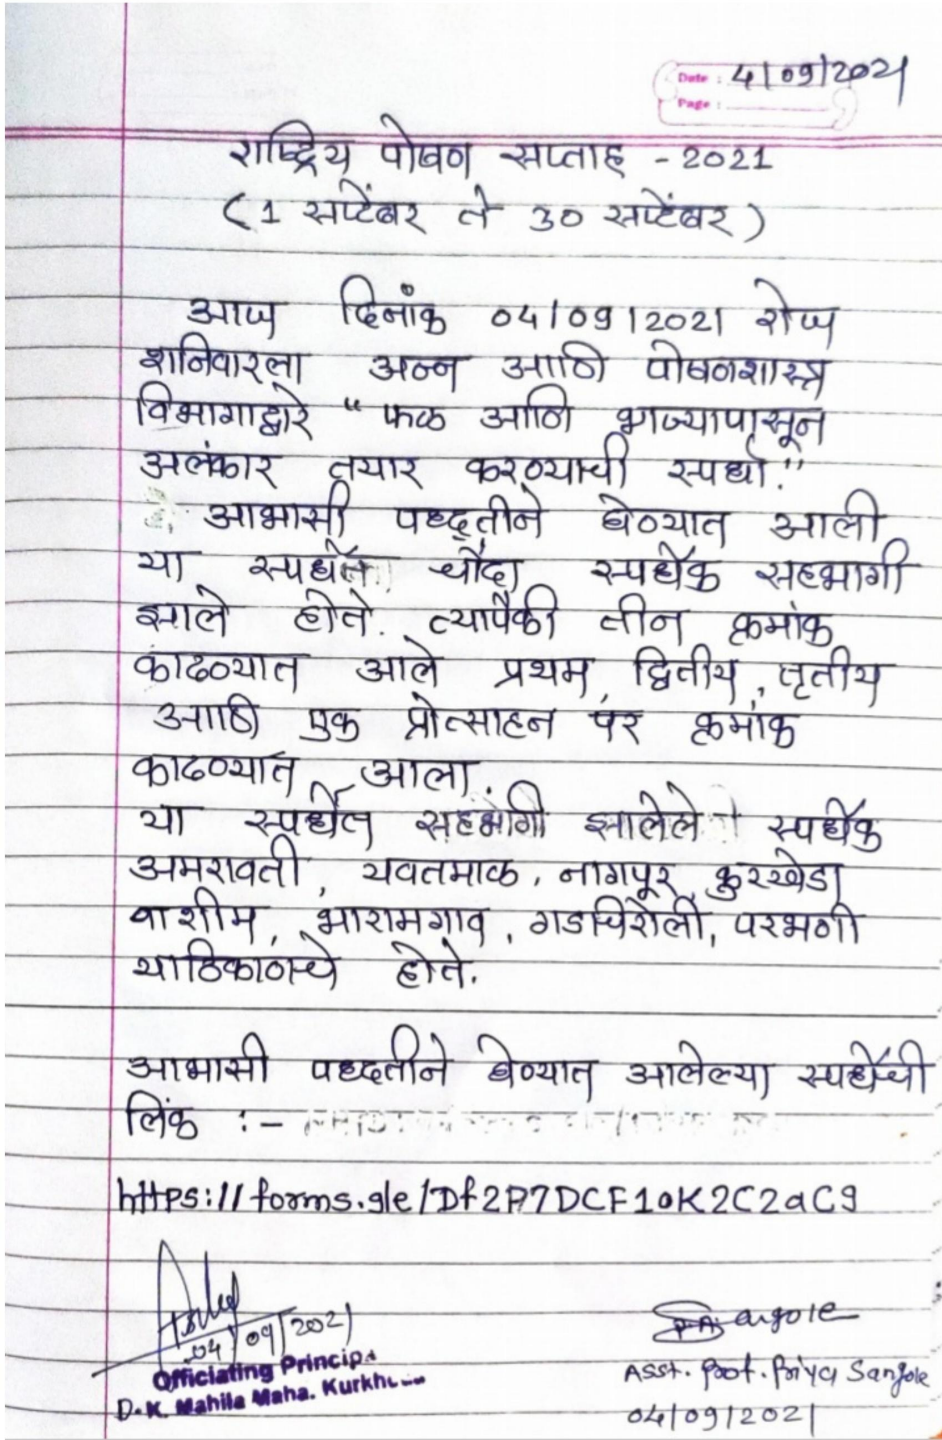 Date : 4/09/2021
Page :
राष्ट्रिय पोषण सप्ताह - 2021
( 1 सप्टेंबर ते 30 सप्टेंबर )
आज दिनांक 04/09/2021 रोज
शनिवारला अन्न आणि पोषणशास्त्र
विभागाद्वारे " फळ आणि भाज्यापासून
अलंकार तयार करण्याची स्पर्धा."
आभासी पध्दतीने घेण्यात आली
या स्पर्धेत चौदा स्पर्धक सहभागी
झाले होते. त्यापैकी तीन क्रमांक
काढण्यात आले प्रथम, द्वितीय, तृतीय
आणि एक प्रोत्साहन पर क्रमांक
काढण्यात आला.
या स्पर्धेत सहभागी झालेले स्पर्धक
अमरावती, यवतमाळ, नागपूर, कुरखेडा
वाशीम, भारामगाव, गडचिरोली, परभणी
याठिकाणचे होते.
आभासी पध्दतीने घेण्यात आलेल्या स्पर्धेची
लिंक :-
https://forms.gle/Df2P7DCF1oK2C2aC9
04/09/2021
Officiating Principa
D. K. Mahila Maha. Kurkh
P.A. Sangole
Asst. Prof. Priya Sangole
04/09/2021